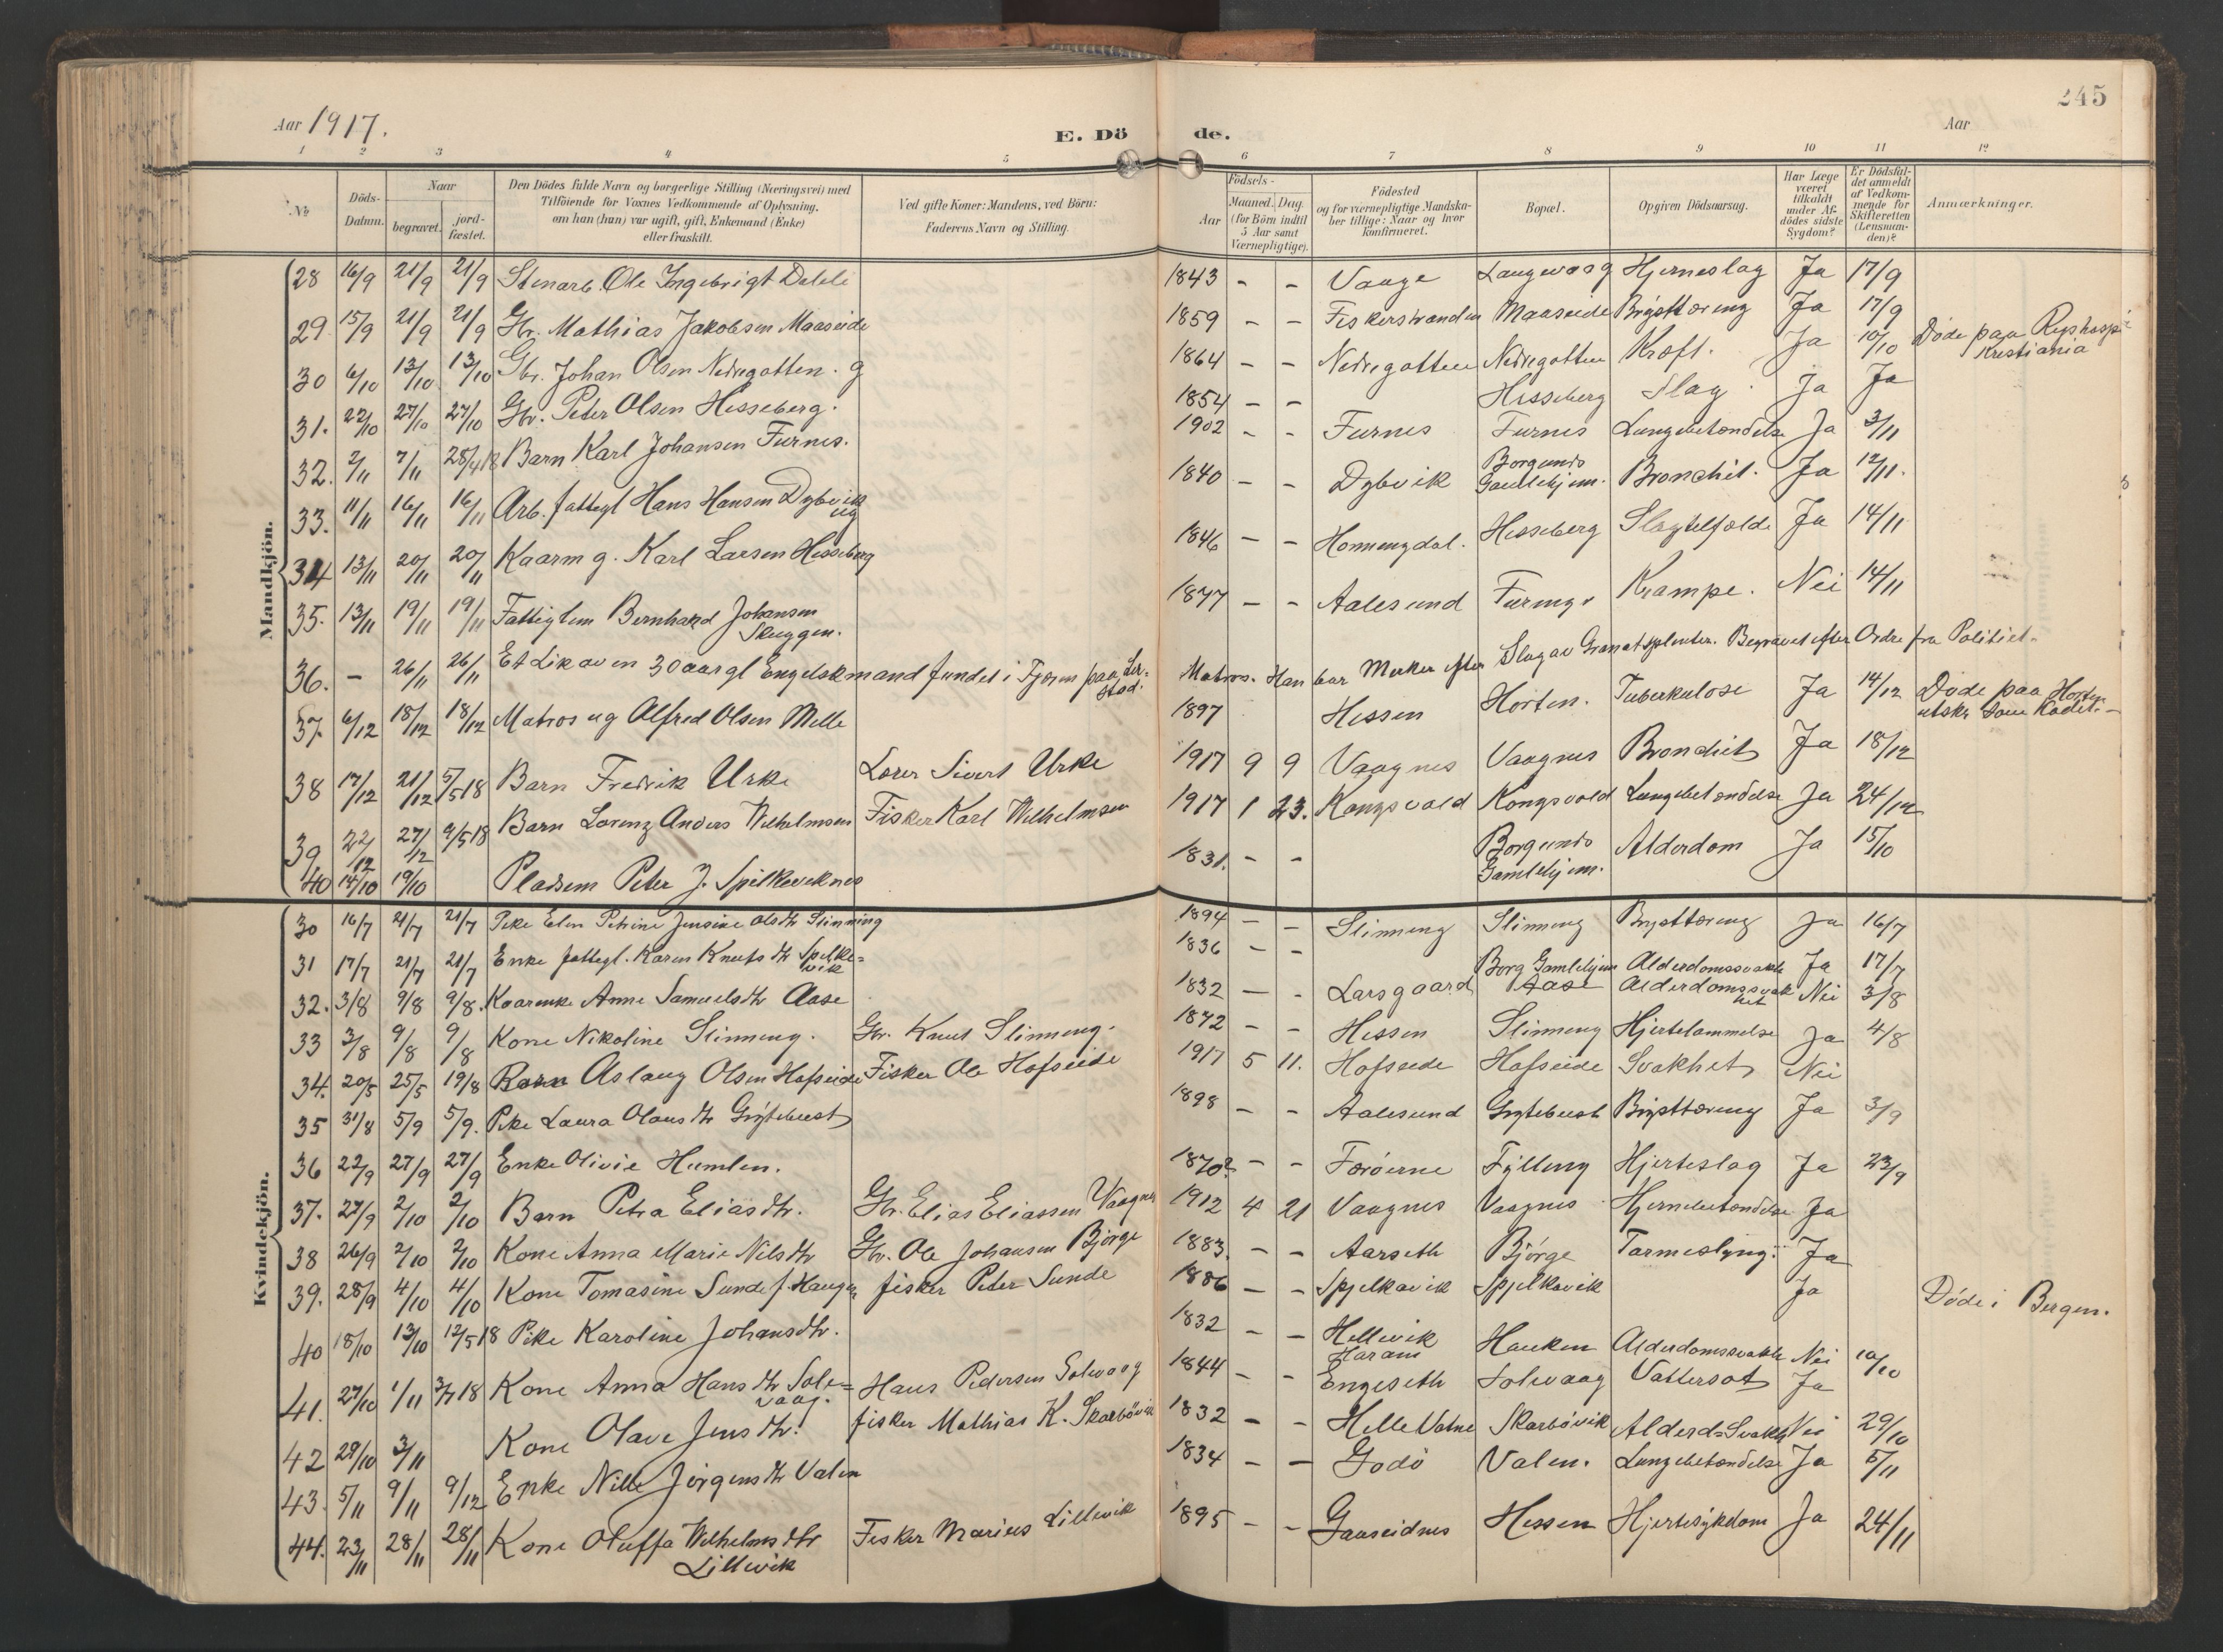 245
Aar 1917.
E. Döde.
Aar
1 2 3 4 5 6 7 8 9 10 11 12
№
Döds-Datum.
Naar
begravet.
jord-fæstet.
Den Dödes fulde Navn og borgerlige Stilling (Næringsvei) med
Tilföiende for Voxnes Vedkommende af Oplysning,
om han (hun) var ugift, gift, Enkemand (Enke)
eller fraskilt.
Ved gifte Koner: Mandens, ved Börn:
Faderens Navn og Stilling.
Födsels-
Aar
Maaned. Dag.
(for Börn indtil
5 Aar samt
Værnepligtige).
Födested
og for værnepligtige Mandska-
ber tillige: Naar og hvor
konfirmeret.
Bopæl.
Opgiven Dödsaarsag.
Har Læge
været
tilkaldt
under Af-
dödes sidste
Sygdom?
Er Dödsfal-
det anmeldt
af Vedkom-
mende for
Skifteretten
(Lensman-
den)?
Anmærkninger.
Mandkjön.
28 16/9 21/9 21/9 Stenarb. Ole Ingebrigt Dalebö 1843 - - Vaage Langevaag Hjerneslag Ja 17/9
29. 15/9 21/9 21/9 Gbr. Mathias Jakobsen Maaseide 1859 - - Fiskerstranden Maaseide Brysttæring Ja 17/9
30 6/10 13/10 13/10 Gbr. Johan Olsen Nedregotten. g 1864 - - Nedregotten Nedregotten Kræft. Ja 10/10 Döde paa Rigshosp. Kristiania
31. 22/10 27/10 27/10 Gbr. Peter Olsen Hesseberg. 1854 - - Hesseberg Slag Ja Ja
32. 2/11 7/11 28/4 18 Barn Karl Johansen Furnes. 1902 - - Furnes Furnes Lungebetændelse Ja 3/11
33. 11/11 16/11 16/11 Arb. fattigl Hans Hansen Dybvik ug 1840 - - Dybvik Borgunds Gamlehjem. Bronchit. Ja 12/11.
34 13/11 20/11 20/11 Kaarm g. Karl Larsen Hesseberg 1846 - - Hornengdal. Hesseberg Slagtilfælde Ja 14/11
35. 13/11 19/11 19/11 Fattiglem Bernhard Johansen Skuggen. 1877 - - Aalesund Krampe. Nei 14/11
36. - 26/11 26/11 Et Lik av en 30 aar gl Engelskmand fundet i Fjæren paa Lerstad. Matros. Han bar Merker efter Slag av Granatsplinter. Begravet efter Ordre fra Politiet.
37. 6/12 18/12 18/12 Matros ug Alfred Olsen Melle 1897 Hessen Horten. Tuberkulose Ja 14/12 Döde paa Horten utskr som Kadet.-
38 17/12 21/12 5/5 18 Barn Fredrik Urke Lærer Sivert Urke 1917 9 9 Vaagnes Vaagnes Bronchit Ja 18/12
39 22/12 27/12 9/5 18 Barn Lorenz Anders Wilhelmsen Fisker Karl Wilhelmsen 1917 1 23. Kongsvold Kongsvold Lungebetændelse Ja 24/12
40 14/10 19/10 Pladsem Peter J. Spilkeviknes 1831. - - Borgunds Gamlehjem. Alderdom Ja 15/10
Kvindekjön.
30 16/7 21/7 21/7 Pike Elen Petrine Jensine Olsdtr Slinning 1894 - - Slinning Slinning Brysttæring Ja 16/7
31 17/7 21/7 21/7 Enke fattigl. Karen Knutsdtr Spilkevik 1836 - - Borg Gamlehjem Alderdomssvakh Ja 17/7
32. 3/8 9/8 9/8. Kaarenke Anne Samuelsdtr Aase 1832 - - Larsgaard Aase Alderdomssvakhet Nei 3/8
33 3/8 9/8 9/8 Kone Nikoline Slinning. Gbr. Knut Slinning. 1872 - - Hessen Slinning Hjertelammelse Ja 4/8
34. 20/5 25/5 19/8 Barn Aslaug Olsen Hofseide Fisker Ole Hofseide 1917 5 11. Hofseide Hofseide Svakhet Nei
35 31/8 5/9 5/9. Pike Laura Olausdtr Grytebust 1898 - - Aalesund Grytebust Brysttæring Ja 3/9
36 22/9 27/9 27/9 Enke Olivie Humlen. 1870? - - Færöerne Fylling Hjerteslag Ja 23/9
37. 27/9 2/10 2/10 Barn Petra Eliasdtr. Gbr. Elias Eliassen Vaagnes 1912 4 21 Vaagnes Vaagnes Hjernebetændelse Ja
38 26/9 2/10 2/10 Kone Anna Marie Nilsdtr Gbr. Ole Johansen Björge 1883. - - Aarseth Björge Tarmeslyng: Ja
39. 28/9 4/10 4/10 Kone Tomasine Sunde f. Haugen fisker Peter Sunde 1886 - - Spjelkavik Spjelkavik Ja Döde i Bergen.
40 18/10 13/10 12/5 18 Pike Karoline Johansdtr. 1832 - - Hellevik Haram Hauken Alderdomssvakh Nei 10/10
41. 27/10 1/11 3/7 18 Kone Anna Hansdtr Solevaag. Hans Pedersen Solevaag 1844 - - Engeseth Solevaag Vattersot Ja
42 29/10 3/11 Kone Olave Jensdtr. fisker Mathias K. Skarbövik 1832 - - Helle Vatne Skarbövik Alderd=Svakh Nei 29/10
43. 5/11 9/11 9/12 Enke Nille Jörgensdtr Valen 1834 - - Godö Valen. Lungebetændelse Ja 5/11
44. 23/11 28/11 28/11 Kone Oluffa Wilhelmsdtr Lillevik Fisker Marius Lillevik 1895 - - Gaaseidnes Hessen Hjertesykdom Ja 24/11